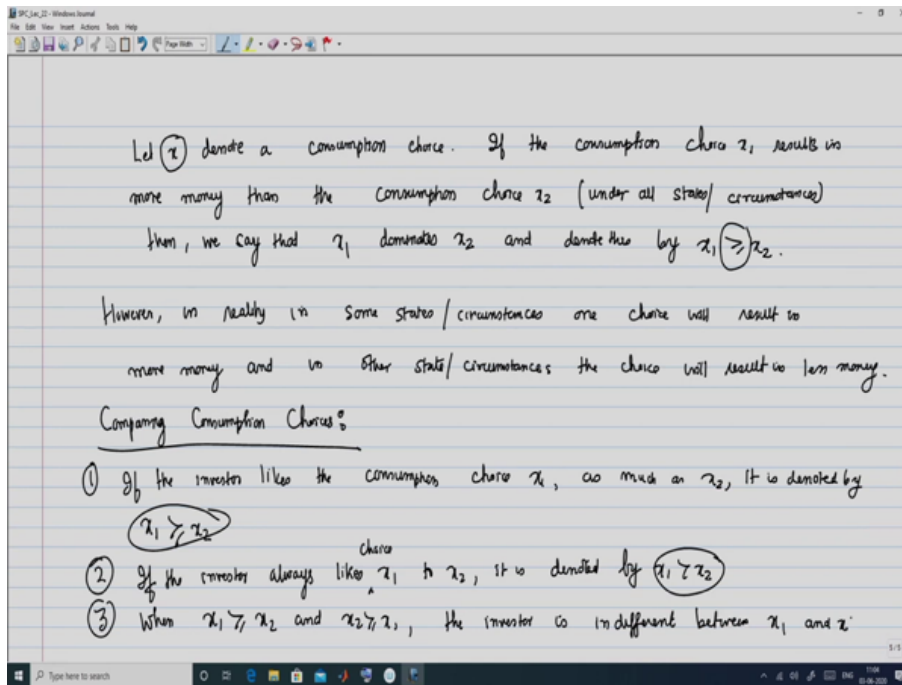 SPC_Lec_22 - Windows Journal
File Edit View Insert Actions Tools Help
Page Width
Let x denote a consumption choice. If the consumption choice x₁ results in
more money than the consumption choice x₂ (under all states/ circumstances)
then, we say that x₁ dominates x₂ and denote this by x₁ ≥ x₂.
However, in reality in some states/circumstances one choice will result in
more money and in other state/ circumstances the choice will result in less money.
Comparing Consumption Choices:
① If the investor likes the consumption choice x₁, as much as x₂, it is denoted by
x₁ ≽ x₂
choice
② If the investor always likes x₁ to x₂, it is denoted by x₁ ≻ x₂
③ When x₁ ≽ x₂ and x₂ ≽ x₁, the investor is indifferent between x₁ and x
5/5
Type here to search
ENG
11:04
03-06-2020